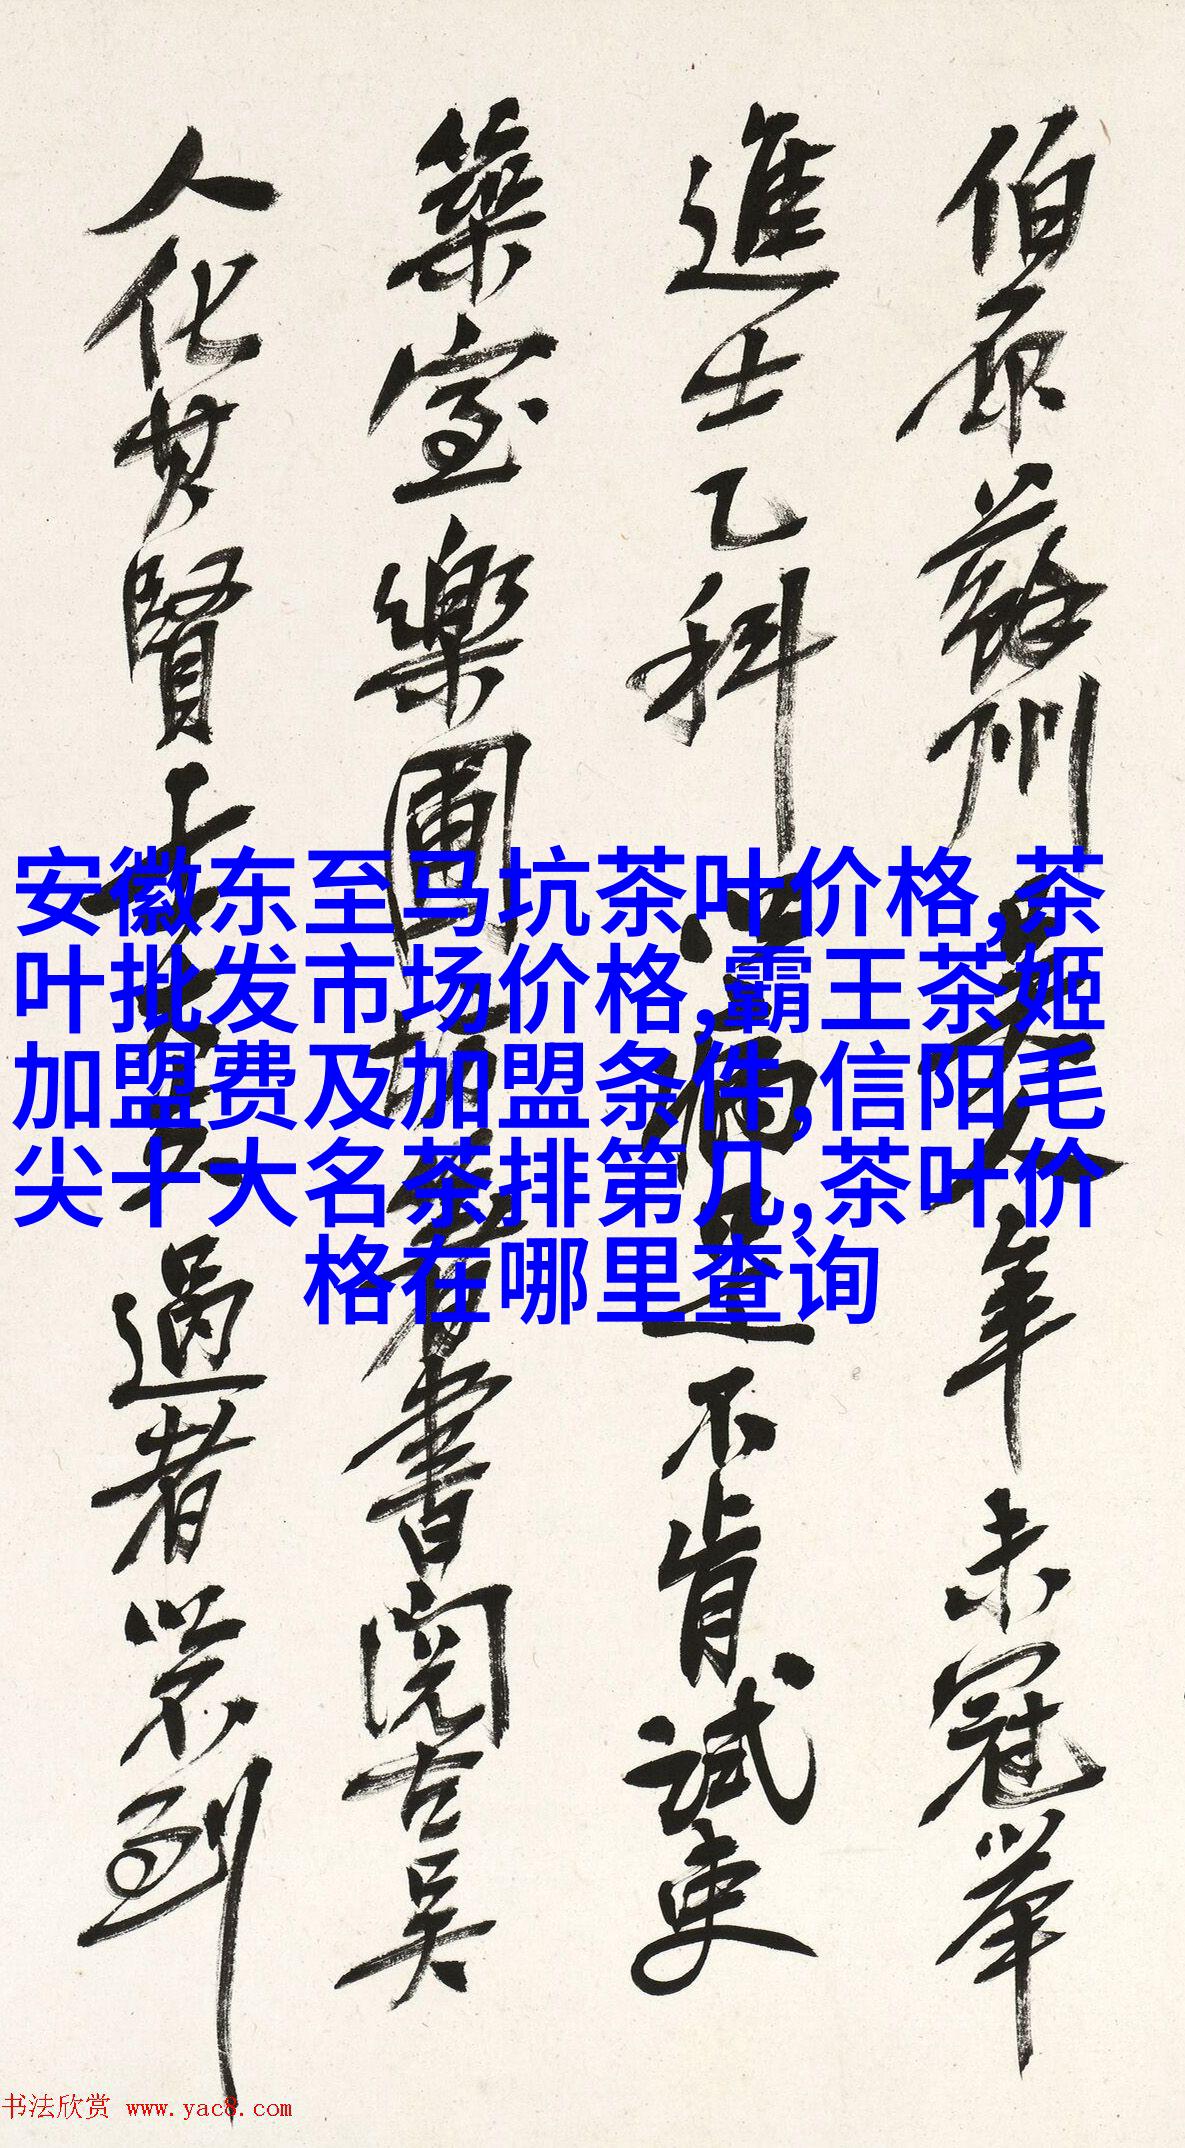 伯原蘇州長人年未冠舉
進士乙科以病足不肯試吏
築室樂圃坊著書閱古吳
人化其賢士大夫過者必不到
安徽东至马坑茶叶价格,茶
叶批发市场价格,霸王茶姬
加盟费及加盟条件,信阳毛
尖十大名茶排第几,茶叶价
格在哪里查询
书法欣赏 www.yac8.com